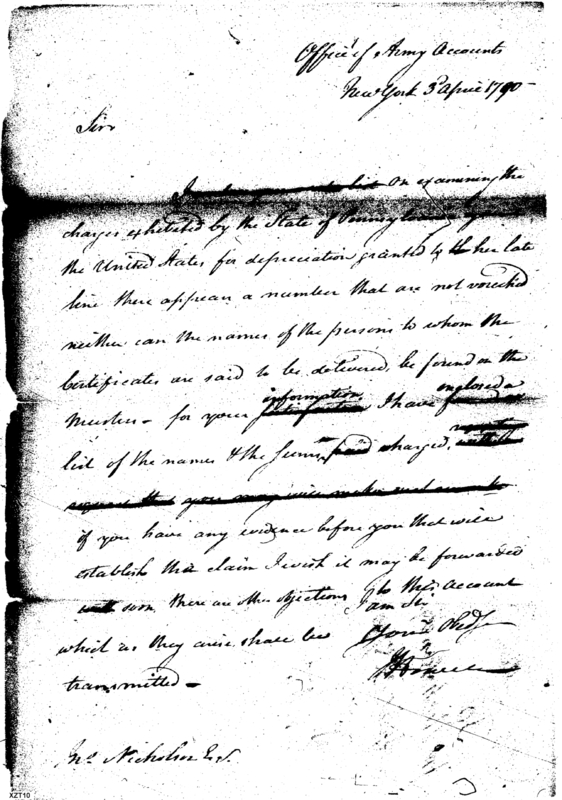 Office of Army Accounts
New York 3d April 1790 -
Sir
On examining the
charges exhibited by the State of Pennsylvania
the United States for depreciation granted to her late
line there appear a number that are not vouched
neither can the names of the persons to whom the
Certificates are said to be delivered, be found on the
information enclosed a
Musters - for your I have
list of the names & the sums charged,
if you have any evidence before you that will
establish the claim I wish it may be forwarded
soon, there are other objections to this Account
which as they arise shall be
transmitted -
I am Sir
Your Obed
J Howell
Jno Nicholson Esq.
XZT10